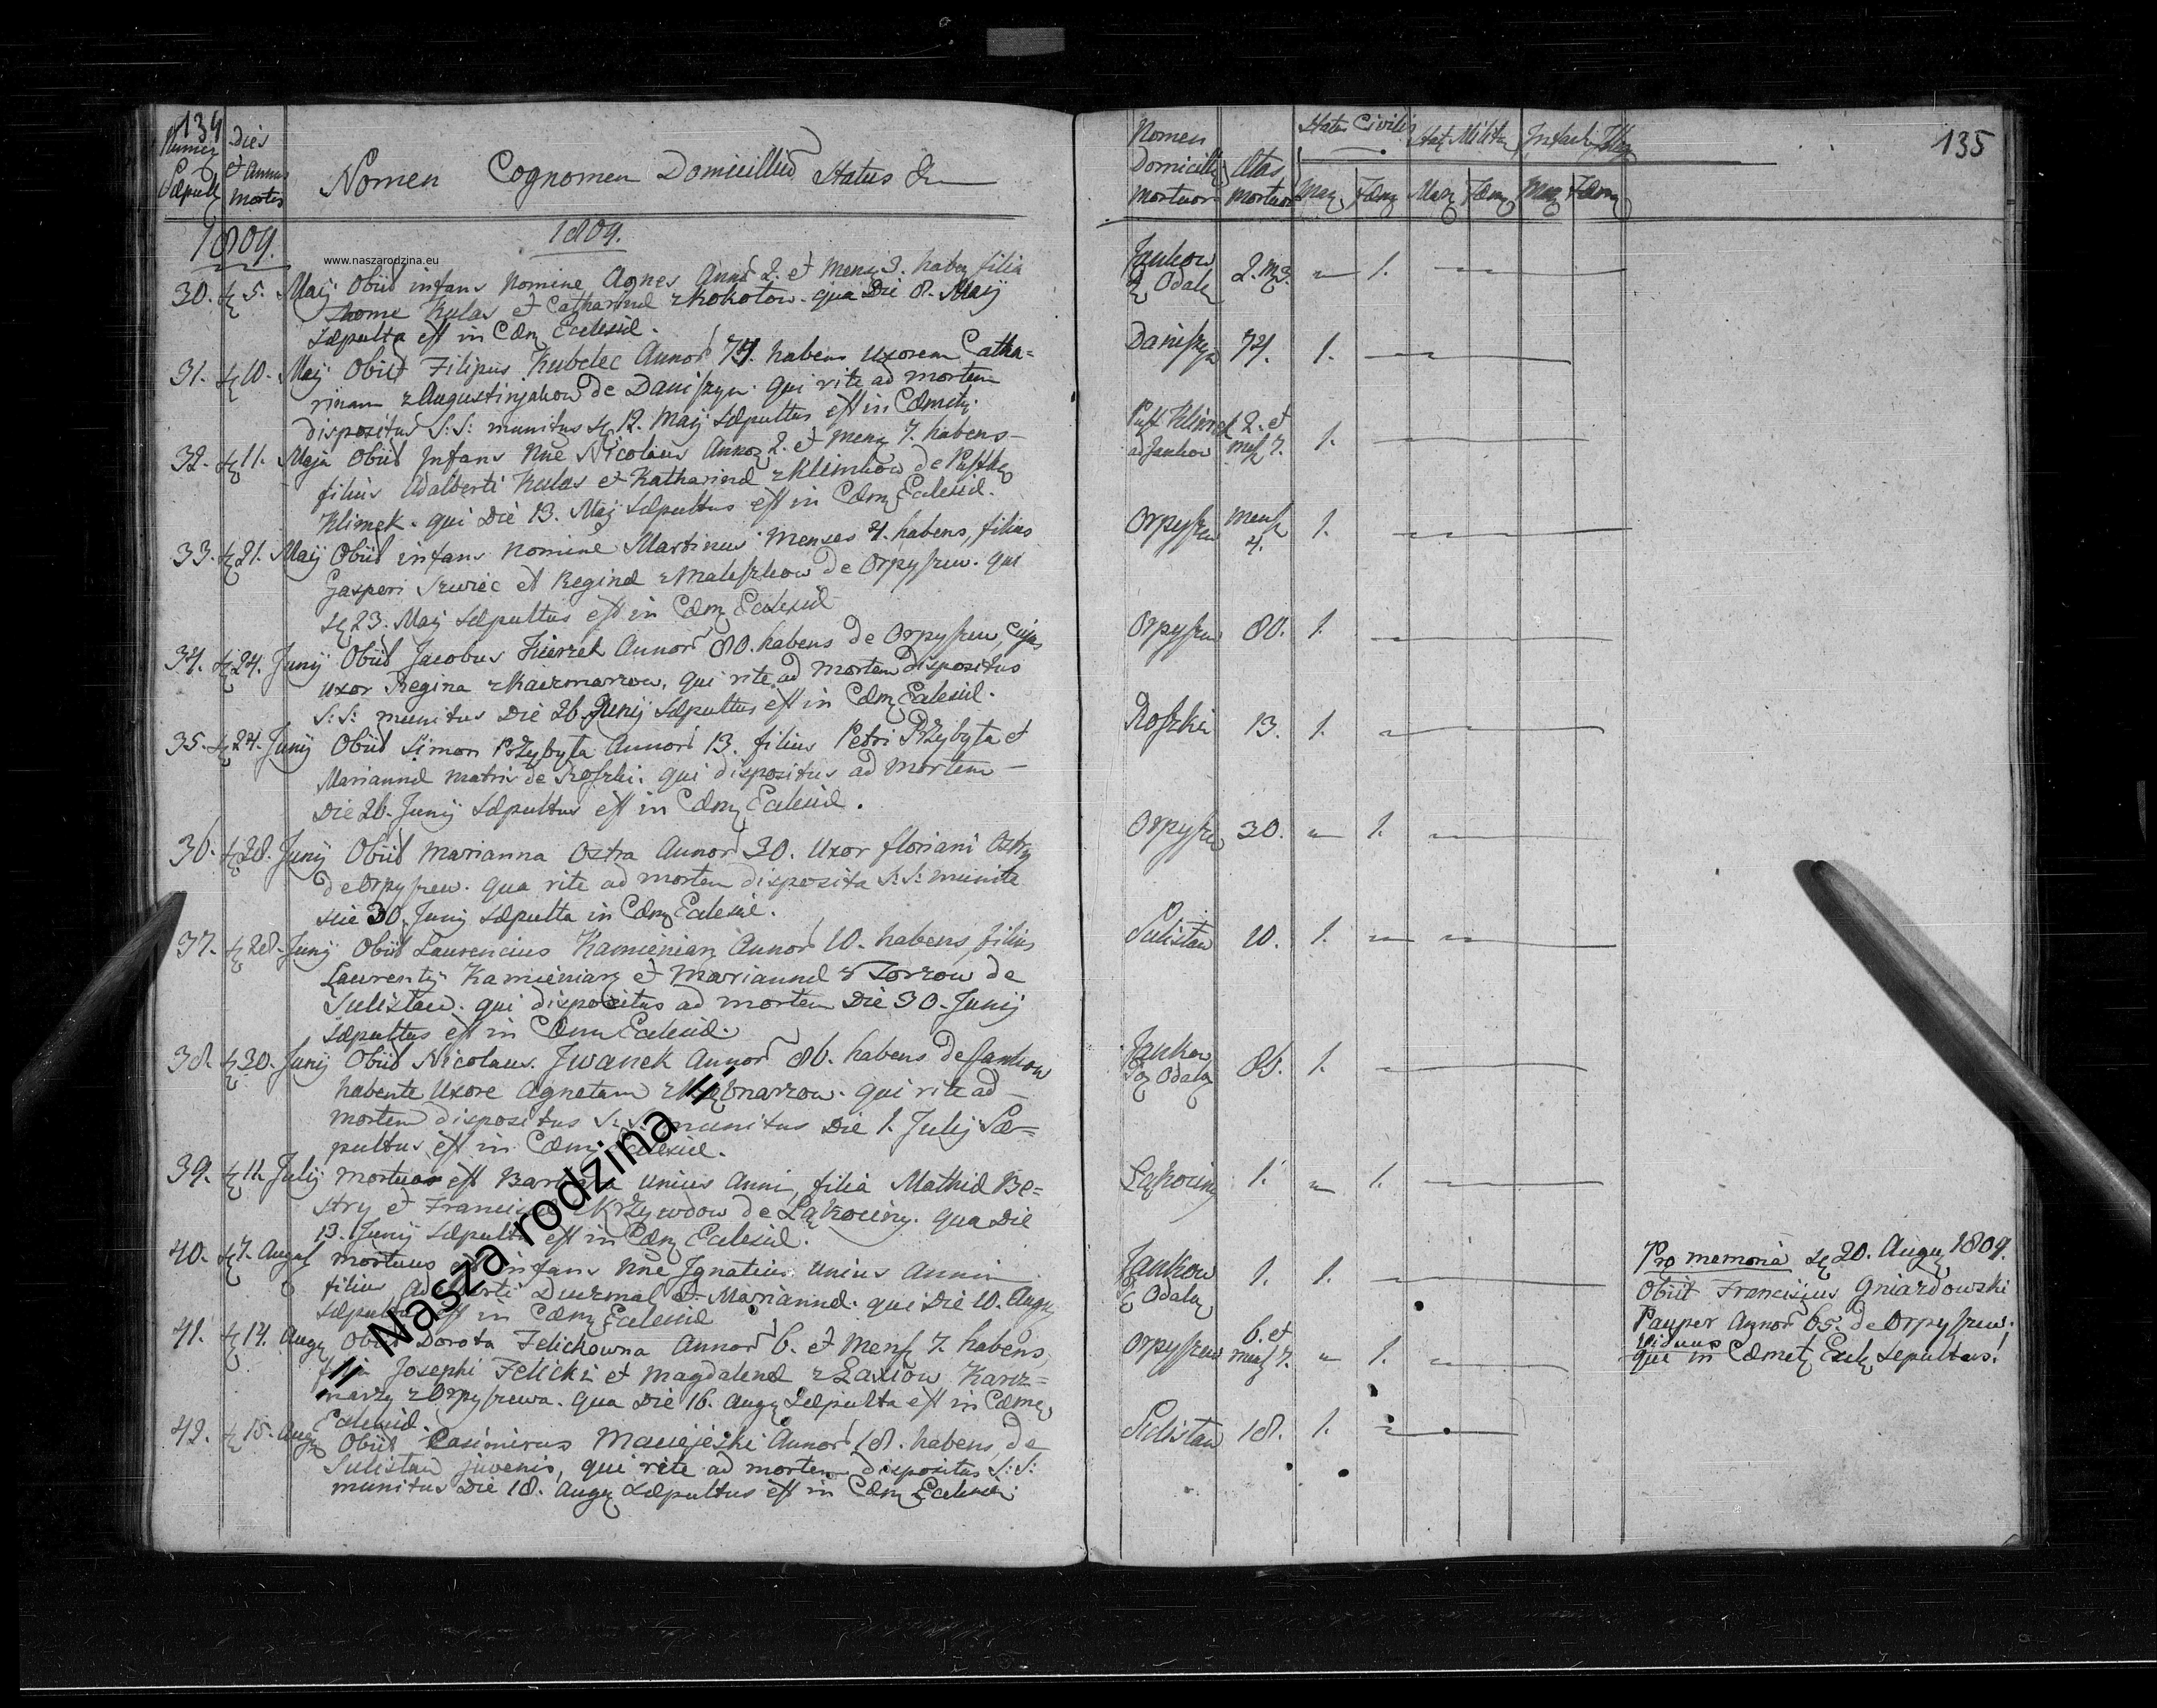 134
Numer Dies
et Annus
Sepult mortis
Nomen Cognomen Domicilliũ Status &
1809. 1809.
www.naszarodzina.eu
30. 5. Maij Obiit infans Nomine Agnes Annor 2. et Mens 3. haben filia
Thome Kulas et Catharinæ z Kokotow. qua Die 8. Maij
Sæpulta est in Cœm Ecclesiæ.
31. 10. Maij Obiit Filipus Kubelec Annor 74. habens Uxorem Catha=
rinam z Augustinjakow de Daniszyn. qui rite ad mortem
dispositus S: S: munitus 12. Maij sæpultus est in Cœmety.
32. 11. Maja Obiit Infans Nne Nicolaus Annor 2. et mens 7. habens
filius Adalberti Kulas et Katharinæ z Klimkow de Pustk
Klimek. qui Die 13. Maj sæpultus est in Cœm Ecclesiæ.
33. 21. Maij Obiit infans nomine Martinus Menses 4. habens, filius
Gasperi Szwiec et Reginæ z Maleszkow de Orpyszew. qui
23. Maij sæpultus est in Cœm Ecclesiæ
34. 24. Junij Obiit Jacobus Zwierzch Annor 80. habens de Orpyszew, cujus
Uxor Regina z Kaczmarzow, qui rite ad mortem dispositus
S: S: munitus Die 26. Junij sæpultus est in Cœm Ecclesiæ.
35. 24. Junij Obiit Simon Przybyta Annor 13. filius Petri Przybyta et
Mariannæ matris de Roszki. qui dispositus ad mortem
Die 26. Junij sæpultus est in Cœm Ecclesiæ.
36. 28. Junij Obiit Marianna Ostra Annor 30. Uxor floriani Ostry
de Orpyszew. qua rite ad mortem disposita S: S: munita
Die 30. Junij sæpulta in Cœm Ecclesiæ.
37. 28. Junij Obiit Laurencius Kamieniarz Annor 10. habens, filius
Laurentij Kamieniarz et Mariannæ z Zorzow de
Sulistaw. qui dispositus ad mortem Die 30. Junij
Sæpultus est in Cœm Ecclesiæ.
38. 30. Junij Obiit Nicolaus Jwanek Annor 86. habens de Jankow
habente Uxore Agnetam qui rite ad
mortem dispositus S: S: munitus Die 1. Julij Sæ=
pultus est in Cœm Ecclesiæ.
39. 11. Julij mortuas est Barbara unius Anni, filia Mathiæ Be=
stry et Franciscæ z Krzywdow de Ląkociny. qua Die
13. Junij sæpulta est in Cœm Ecclesiæ.
40. 7. August mortuus est infans Nne Ignatius unius Anni
filius Adalberti Duczmal et Mariannæ. qui Die 10. Aug
Sæpultus est in Cœm Ecclesiæ
41. 14. Aug Obiit Dorota Felickowna Annor 6. et Mens 7. habens,
filia Josephi Felicki et Magdalenæ z Laxiow Karcz=
marzy z Orpyszewa. qua Die 16. Aug Sæpulta est in Cœme
Ecclesiæ.
42. 15. Aug Obiit Casimirus Maciejeski Annor 18. habens, de
Sulistaw juvenis, qui rite ad mortem dispositus S: S:
munitus Die 18. Aug Sæpultus est in Cœm Ecclesiæ.
Nasza rodzina
135
Nomen Status Civilis Stat Militar
Domicilli Ætas
mortuor mortuor Mas Fœm Mas Fœm Mas Fœm
Jankow 2. M 3. 1.
Odal
Daniszyn 74. 1.
Pust Klimek 2. et 1.
ad Jankow mens 7.
Orpyszew mens 1.
4.
Orpyszew 80. 1.
Roszki 13. 1.
Orpyszew 30. 1.
Sulistaw 10. 1.
Jankow 86. 1.
Odal
Ląkociny 1. 1.
Jankow 1. 1.
Odal
Orpyszew 6. et 1.
mens 7.
Sulistaw 18. 1.
Pro memoria 20. Aug 1809.
Obiit Franciszus Gniazdowski
Pauper Annor 65. de Orpyszew.
viduus
qui in Cœmet Eccl sepultus!